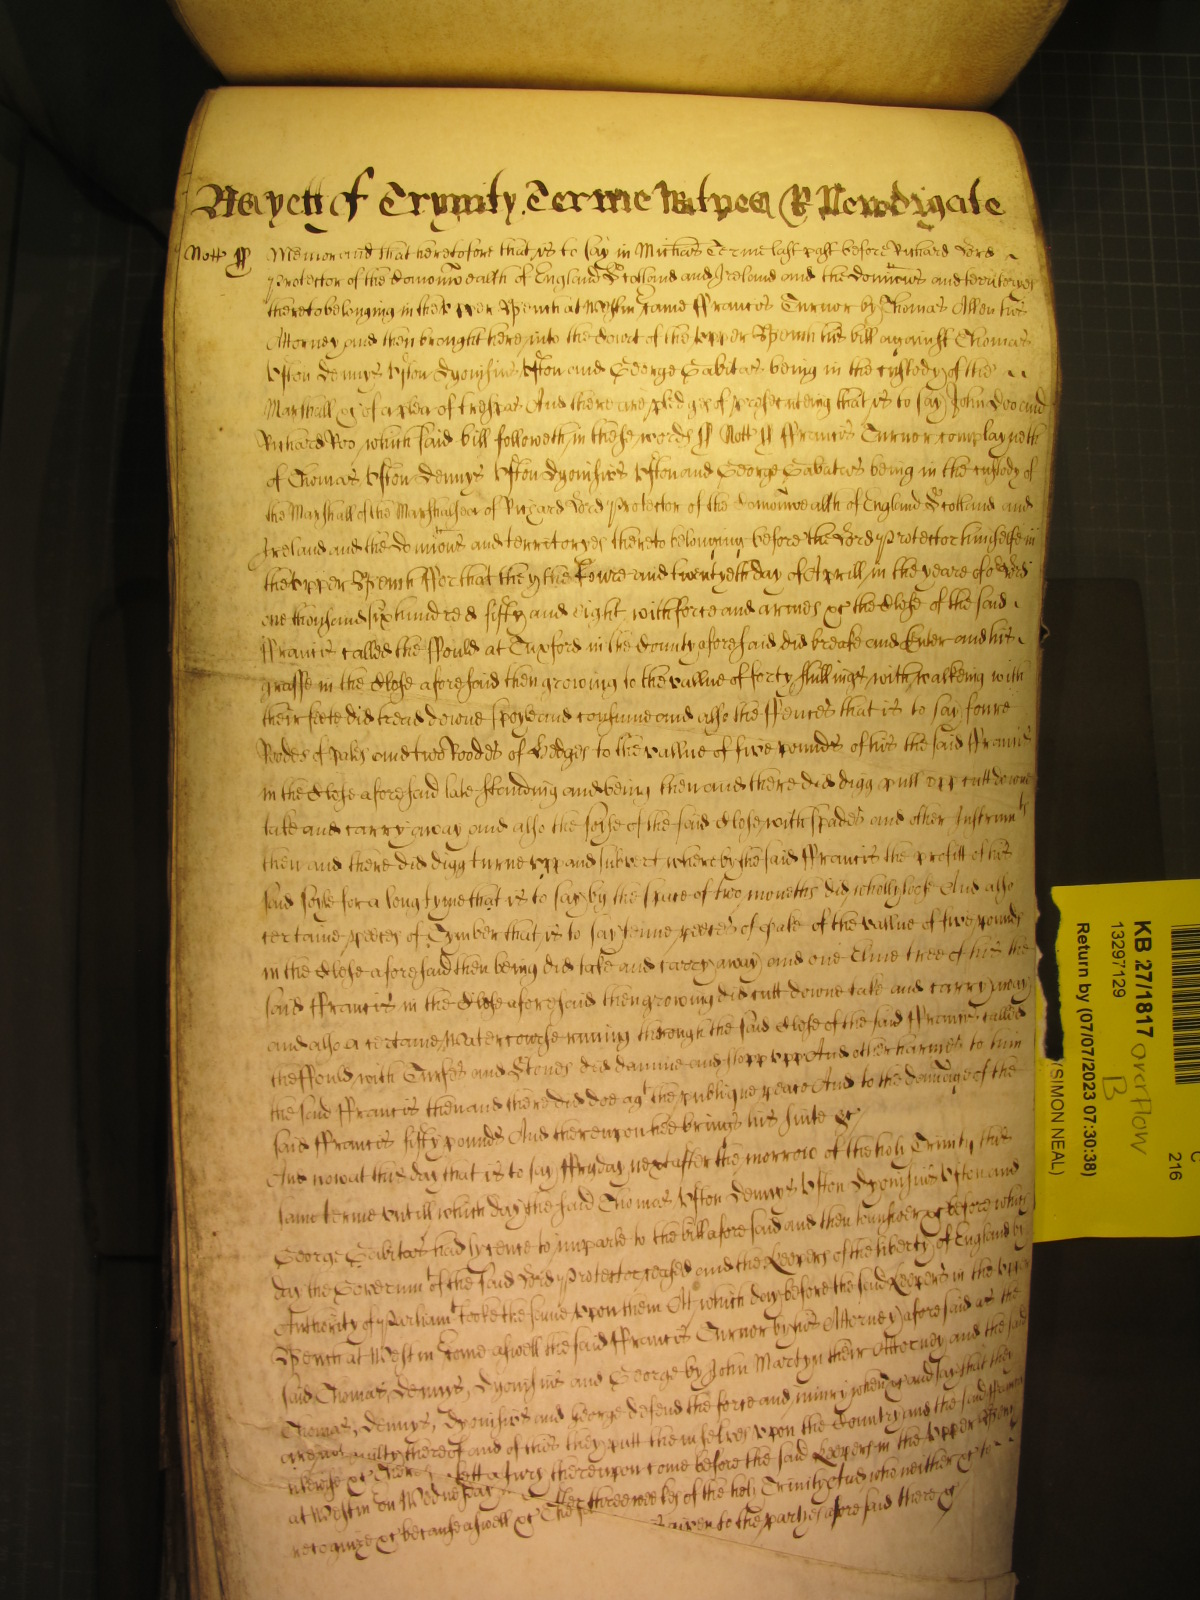 Trynity Terme Witnes R Newdigate
Nott ss Memorand that heretofore that is to say in Michas Terme last past before Richard Lord
Protector of the Comonwealth of England Scotland and Ireland and the Domin̄ons and territoryes
thereto belonging in the vpper Bench at Westm̄ came Ffrancis Turnor by Thomas Allen his
Attorney and then brought here into the Court of the vpper Bench his bill against Thomas
Vfton Dennys Vfton Dyonisius Vfton and George Sabitas being in the custody of the
Marshall &c of a plea of trespas And there are pledges of prosecuteing that is to say John Doo and
Richard Roo, which said bill followeth in these words ss Nott ss Ffrancis Turnor complayneth
of Thomas Vfton Dennys Vfton Dyonisius Vfton and George Sabitas being in the custody of
the Marshall of the Marshalsea of Richard Lord Protector of the Comonwealth of England Scotland and
Ireland and the Domin̄ons and territoryes thereto belonging before the Lord Protector himselfe in
the vpper Bench Ffor that they the fowre and twentyeth day of Aprill in the yeare of or Lord
one thousand six hundred fifty and eight with force and armes &c the Close of the said
Ffrancis called the Ffould at Tuxford in the County aforesaid did breake and Enter and his
grasse in the Close aforesaid then growing to the vallue of forty shillings with walkeing with
their feete did tread downe spoyle and consume and also the Ffences that is to say foure
Roodes of pales and two Roodes of Hedges to the vallue of five pounds of his the said Ffrancis
in the Close aforesaid late standing and being then and there did digg pull vpp cutt downe
take and carry away and also the soyle of the said Close with spades and other Instrumts
then and there did digg turne vpp and subvert whereby the said Ffrancis the profitt of his
said soyle for a long tyme that is to say by the space of two moneths did wholly lose And also
certaine peeces of Tymber that is to say tenne peeces of pale of the vallue of five pounds
in the Close aforesaid then being did take and carry away and one Elme tree of his the
said Ffrancis in the Close aforesaid then growing did cutt downe take and carry away
and also a certaine Watercourse runing through the said Close of the said Ffrancis called
the Ffould with Turfes and Stones did damme and stopp vpp And other harmes to him
the said Ffrancis then and there did doe agt the publique peace And to the damage of the
said Ffrancis fifty pounds And thereupon hee brings his suite &c
And now at this day that is to say Ffryday next after the morrow of the holy Trinity this
same terme vntill which day the said Thomas Vfton Dennys Vfton Dyonisius Vfton and
George Sabitas had lycence to imparle to the bill aforesaid and then to answer &c before which
day the Governmt of the said Lord Protector ceased and the Keepers of the liberty of England by
Authority of Parliamt tooke the same vpon them Att which day before the said Keepers in the vpper
Bench at Westm̄ come aswell the said Ffrancis Turnor by his Attorney aforesaid as the
said Thomas, Dennys, Dyonisius and George by John Martyn their Attorney and the said
Thomas, Dennys, Dyonisius and George defend the force and iniury when &c and say that they
are not guilty thereof and of this they putt themselves vpon the Country and the said Ffrancis
likewise &c Therefore lett a Jury thereupon come before the said Keepers in the vpper Bench
at Westm̄ on Wednesday after three weekes of the holy Trinity and who neither &c to
recognize &c because aswell &c The is given to the partyes aforesaid there &c
KB 27/1817 overflow
13297129 B
Return by (07/07/2023 07:30:38)
(SIMON NEAL)
216